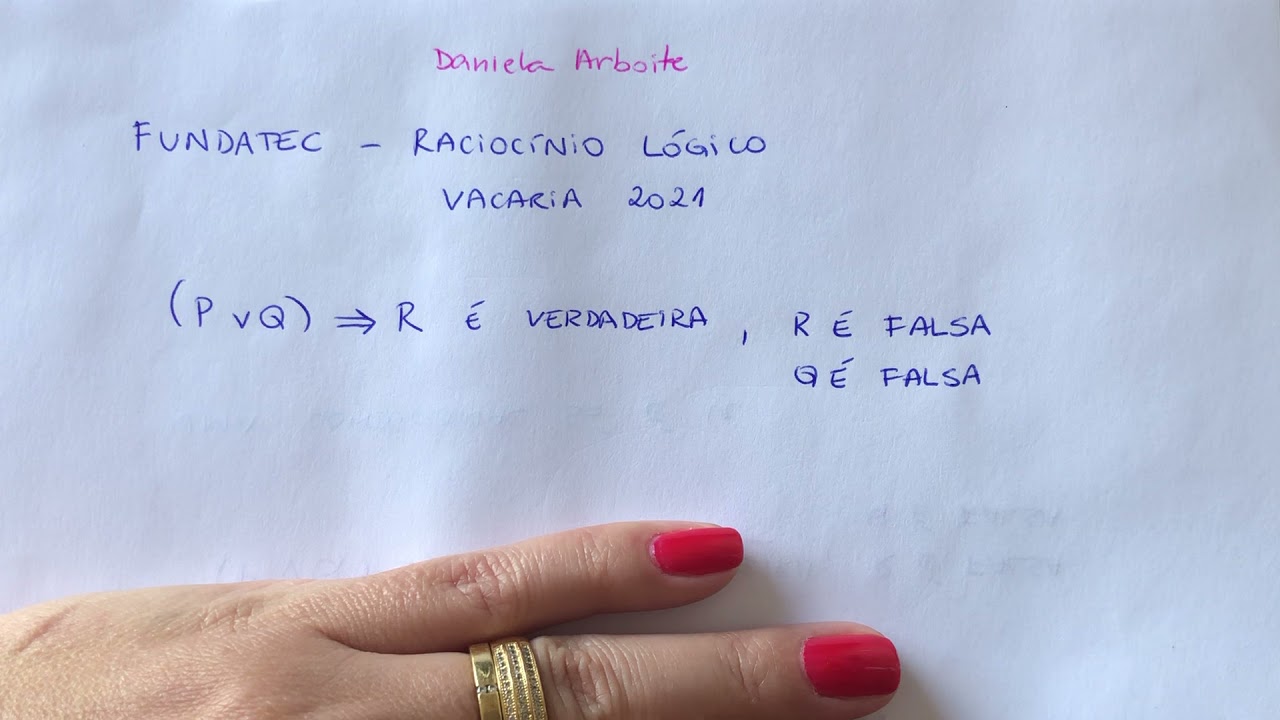 Daniela Arboite
FUNDATEC - RACIOCÍNIO LÓGICO
VACARIA 2021
(P v Q) ⇒ R É VERDADEIRA, R É FALSA
Q É FALSA